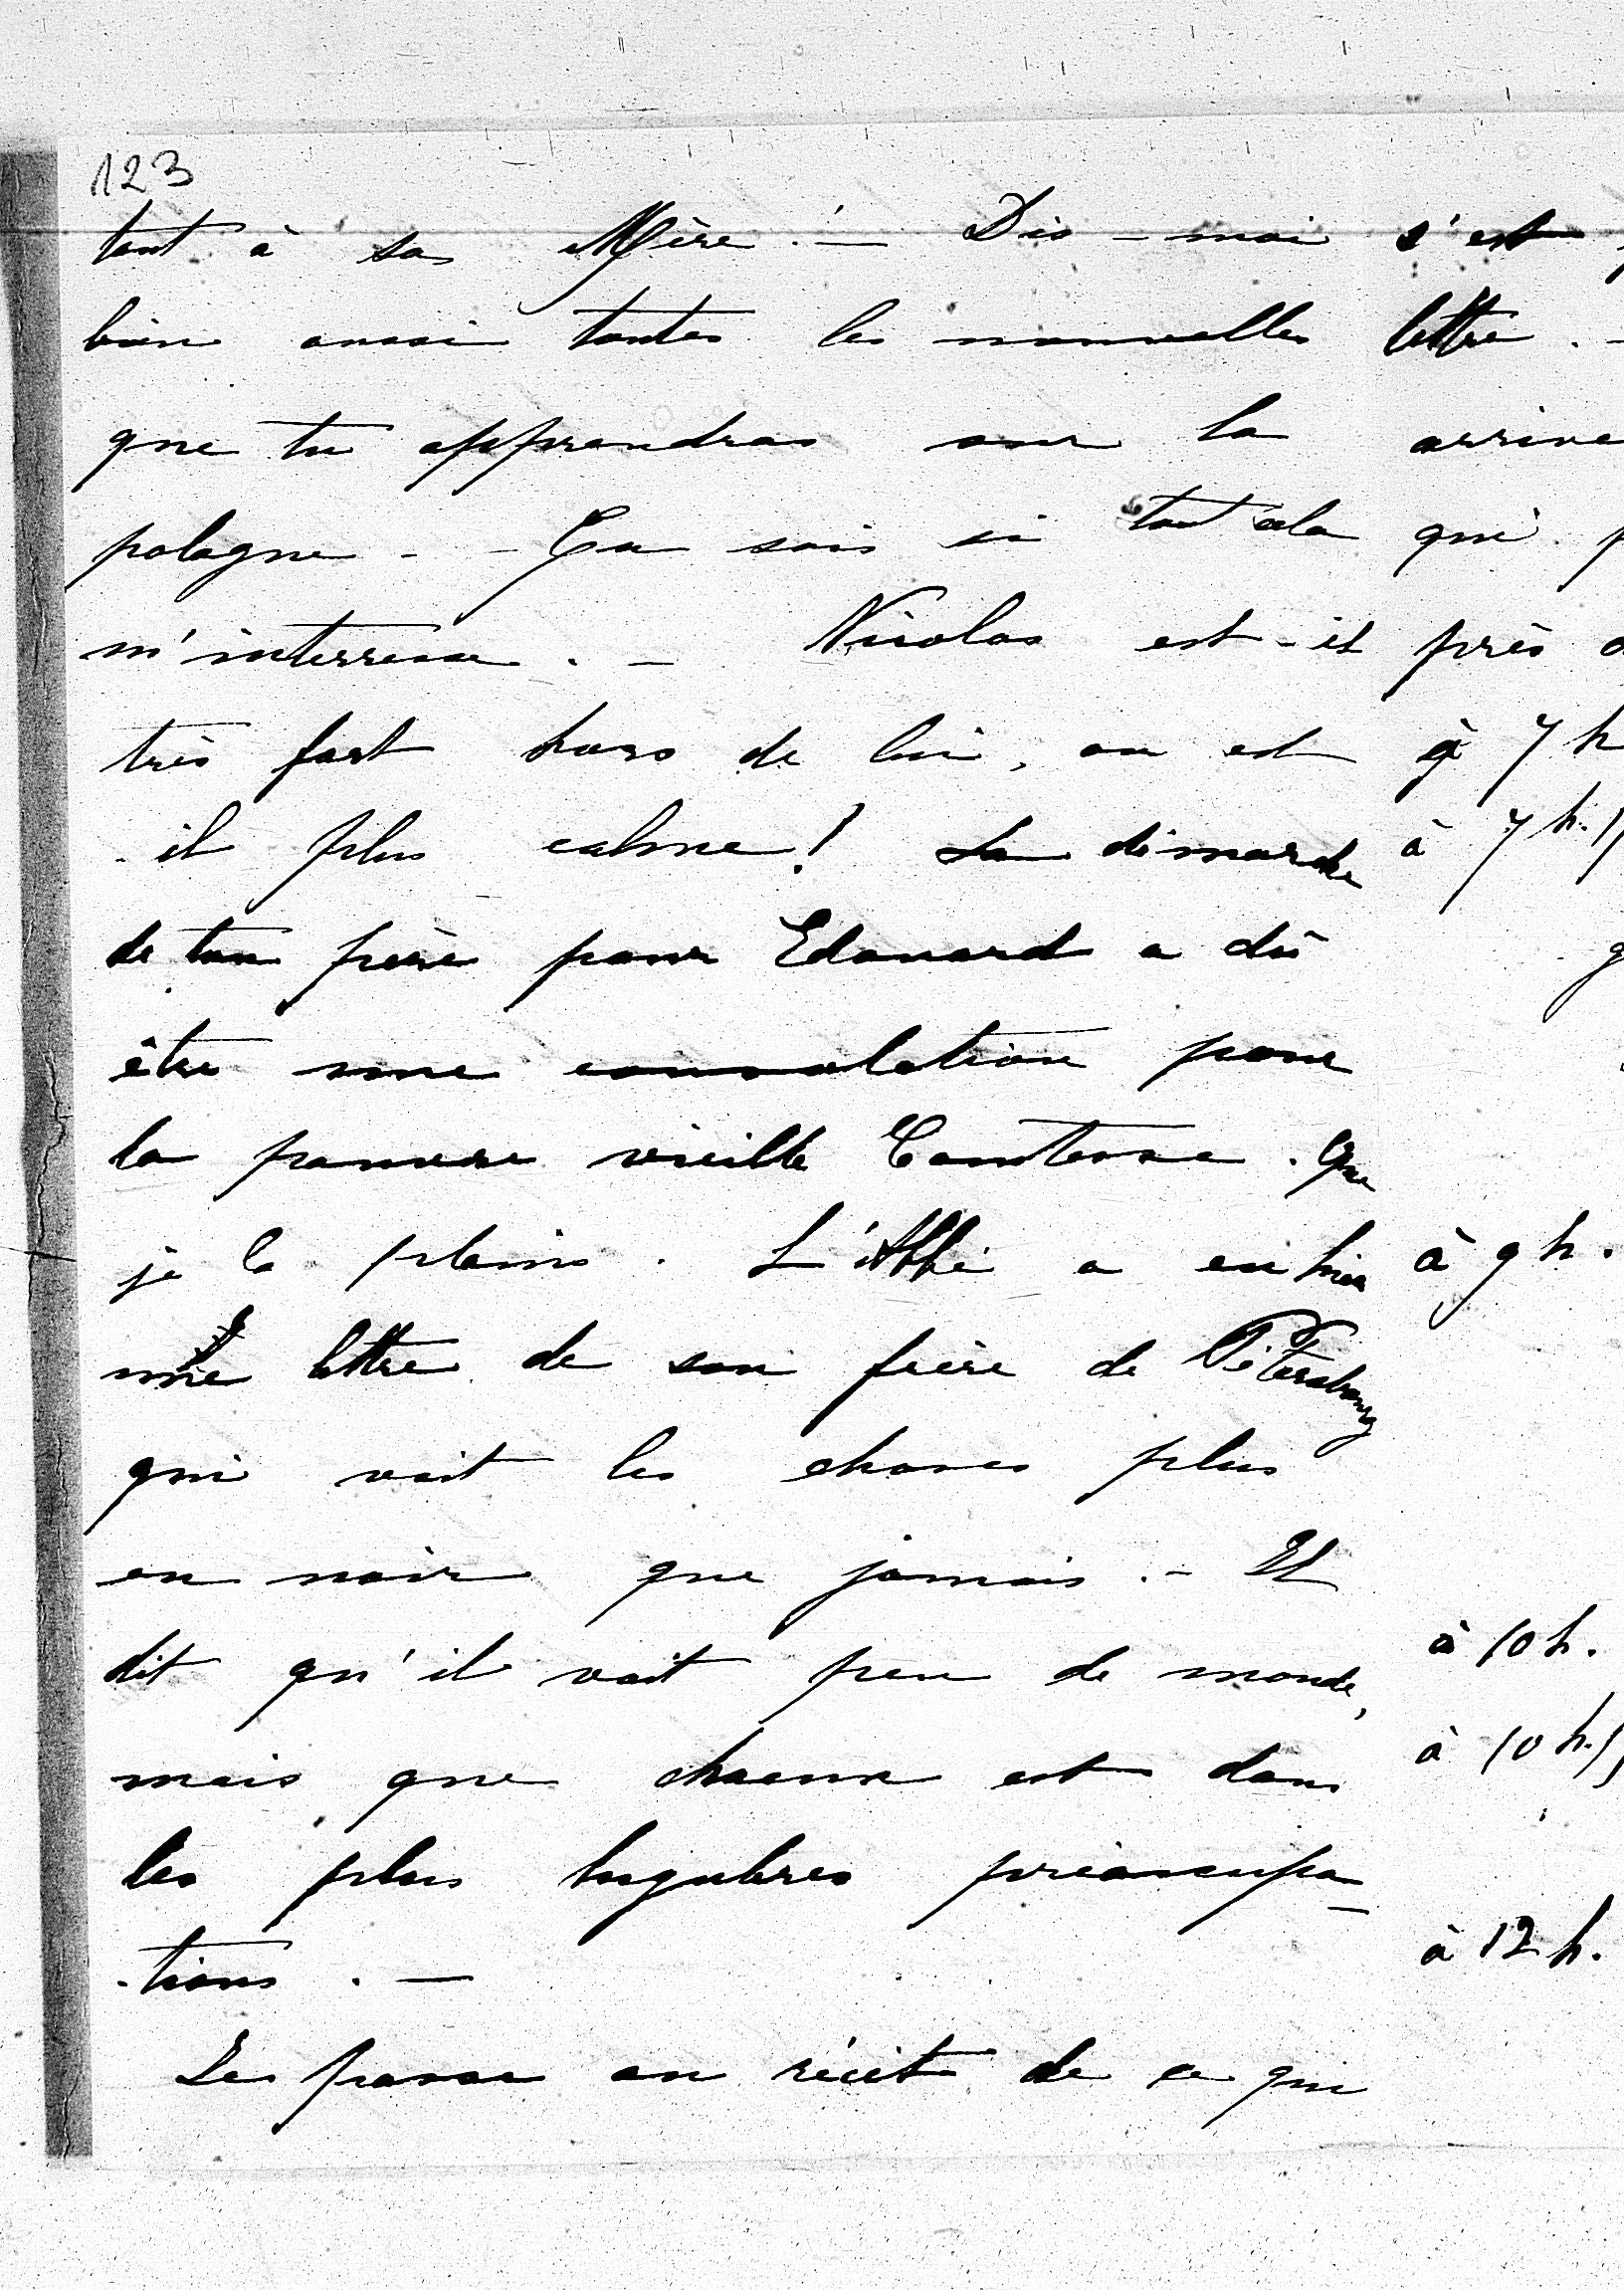 123
tout à sa Mère. — Dis-moi
bien aussi toutes les nouvelles
que tu apprendras sur la
pologne - - Tu sais si tout cela
m'interresse. — Nicolas est-il
très fort hors de lui, ou est
-il plus calme! La démarche
de ton père pour Edouard a dû
être une consolation pour
la pauvre vieille Comtesse. Que
je la plains. L'Abbé a eu hier
une lettre de son frère de Pétersbourg
qui voit les choses plus
en noir que jamais. - Il
dit qu'il voit peu de monde,
mais que chacun est dans
les plus lugubres préoccupa-
-tions. —
Je passe au récit de ce qui
s'est
lettre. -
arrivé
qui
près
à 7 h
à 7 h.
à 9 h.
à 10 h.
à 10 h.
à 12 h.